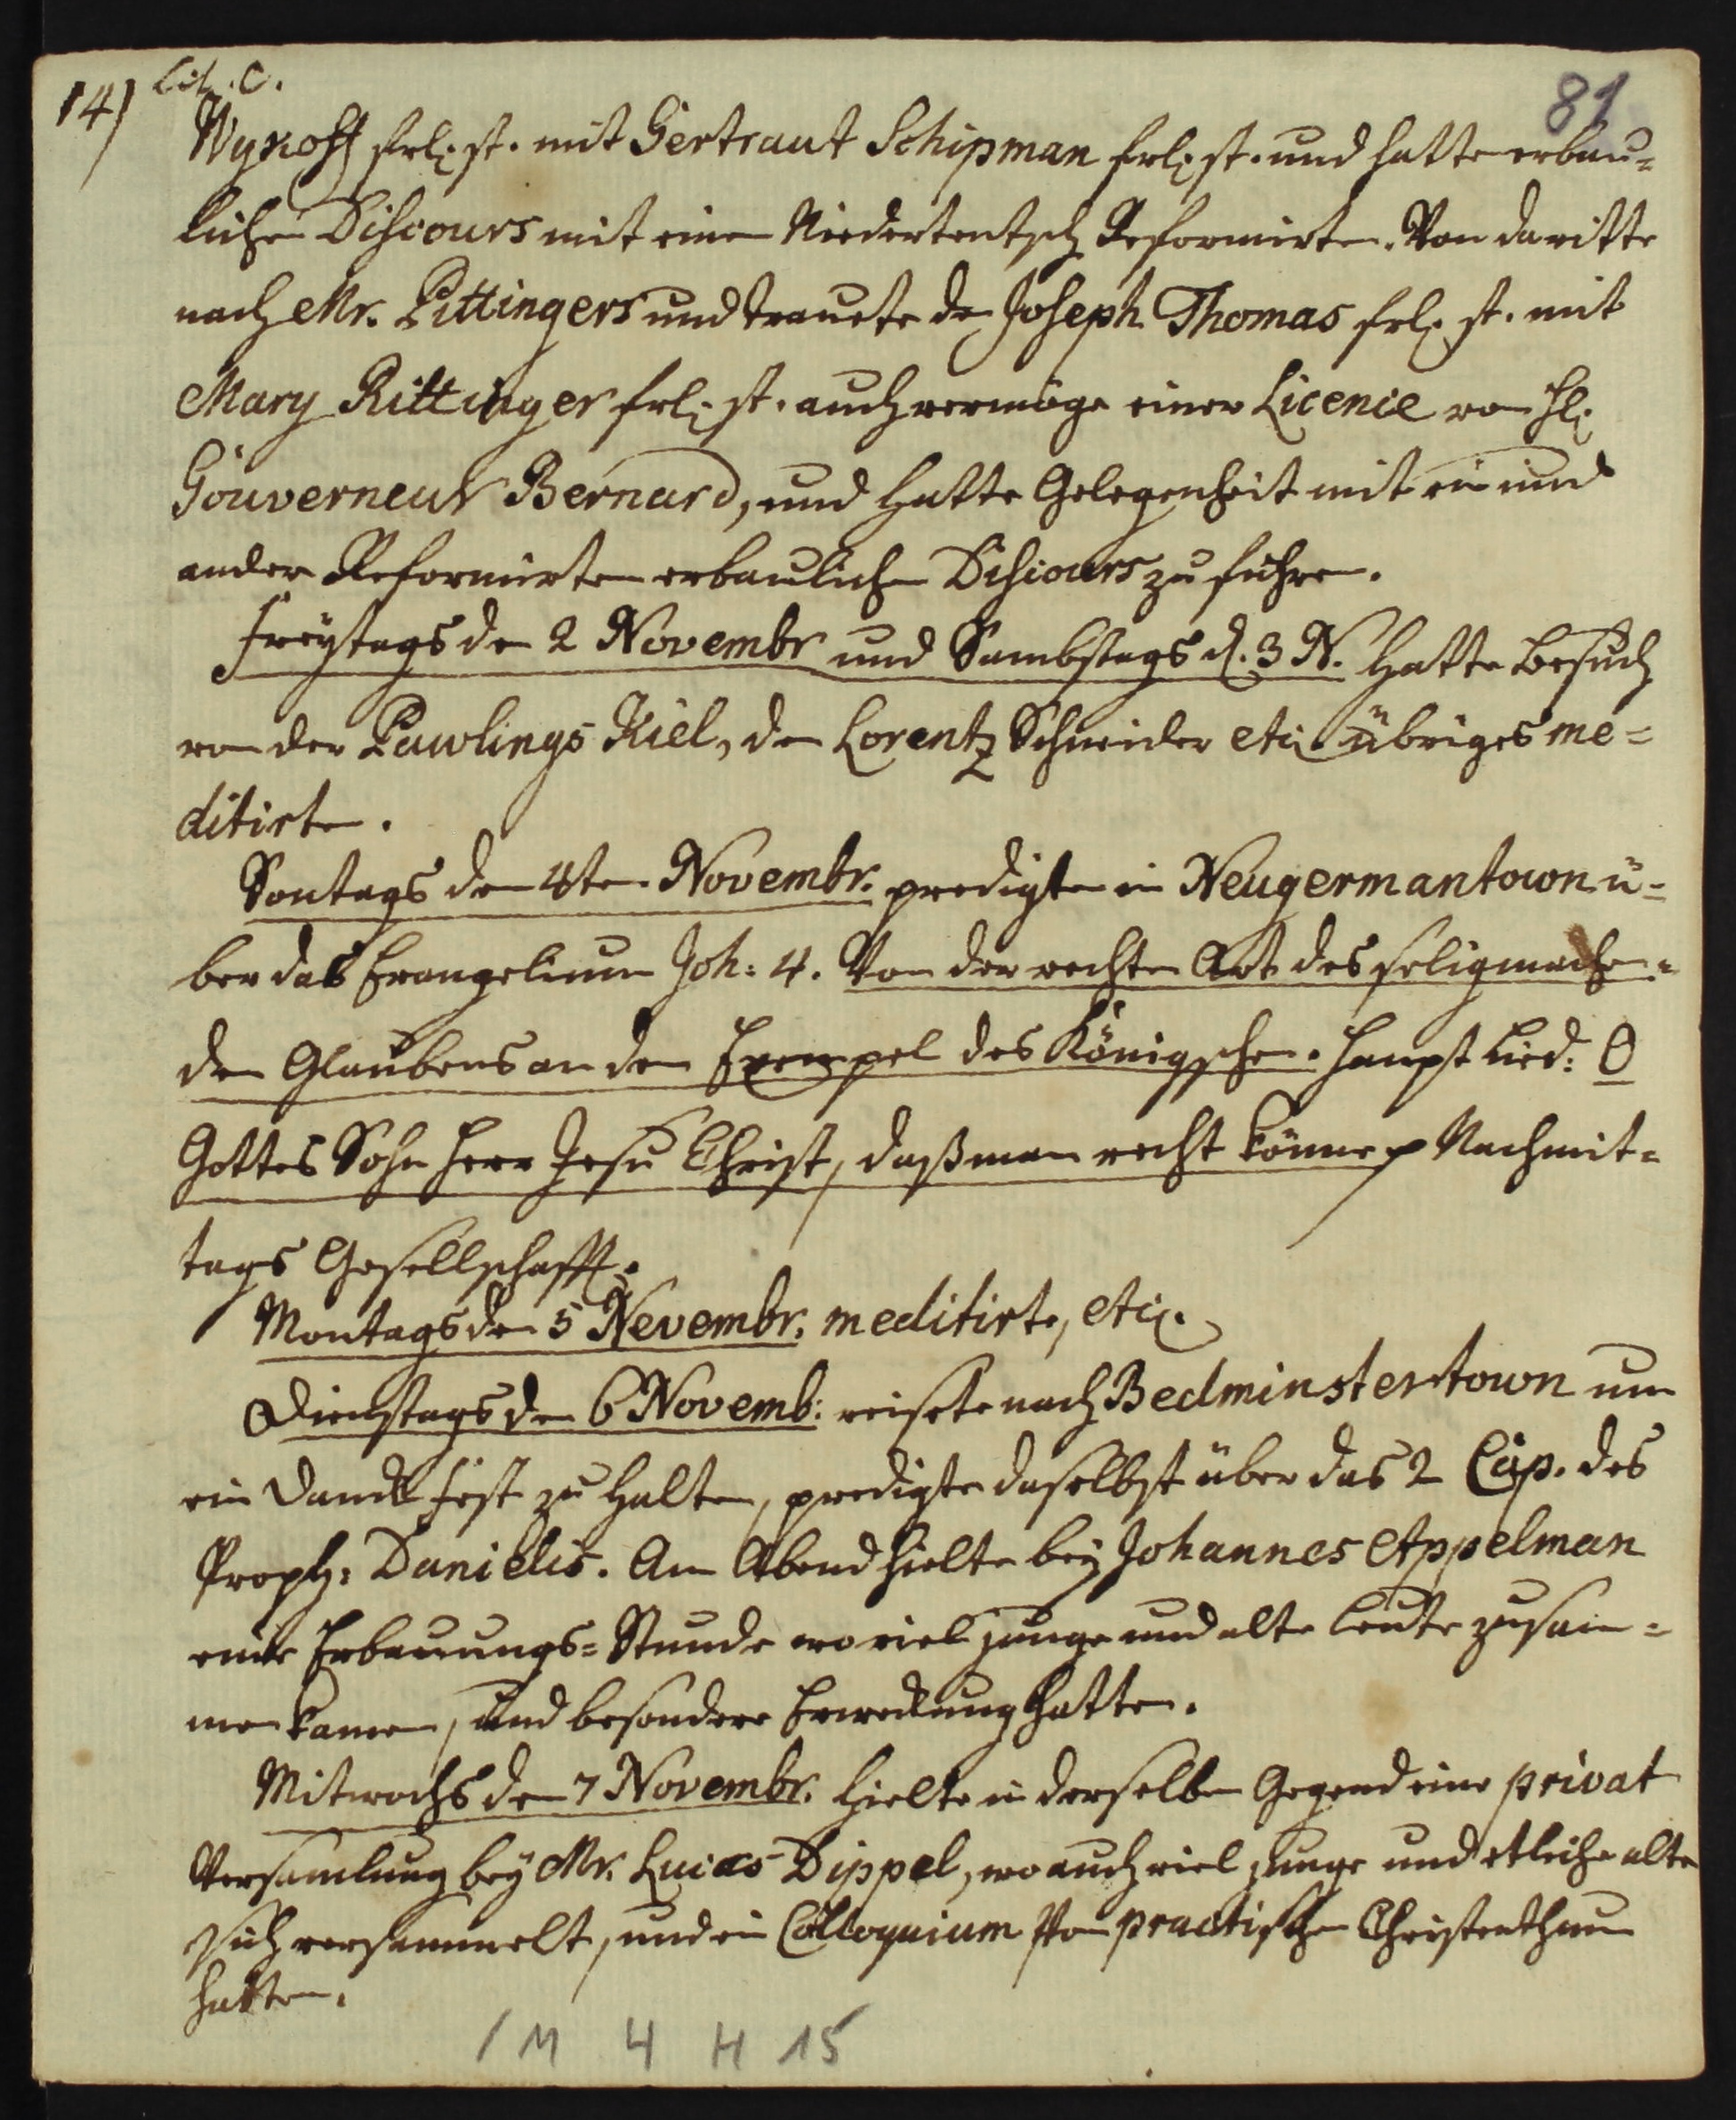 14) Lit. C. 81
Wykoff frl. st. mit Gertraut Schipman frl. st. und hatte erbau=
lichen Discours mit einem Niederteutsch Reformirten. Von da ritte
nach Mr. Pittingers und trauete den Joseph Thomas frl. st. mit
Mary Pittinger frl. st. auch vermöge einer Licence von Hl.
Gouverneur Bernard, und hatte Gelegenheit mit ein und
andern Reformirten erbaulichen Discours zu führen.
Freytags den 2 Novembr und Sambstags d. 3 N. hatte Besuch
von der Pawlings Kiel, den Lorentz Schneider etc. übriges me=
ditirte.
Sontags den 4ten Novembr. predigte in Neugermantown ü=
ber das Evangelium Joh: 4. Von der rechten Art des seligmachen=
den Glaubens an dem Exempel des Königschen. Haupt Lied: O
Gottes Sohn Herr Jesu Christ, daß man recht könne p Nachmit=
tags Gesellschafft.
Montags den 5 Nevembr. meditirte, etc.
Dienstags den 6 Novemb: reisete nach Bedminstertown um
ein Danck Fest zu halten, predigte daselbst über das 2 Cap. des
Proph: Danielis. Am Abend hielte bey Johannes Appelman
eine Erbauungs=Stunde wo viel junge und alte Leute zusam=
men kamen, und besondere Erweckung hatten.
Mitwochs den 7 Novembr. hielte in derselben Gegend eine privat
Versamlung bey Mr. Lucas Dippel, wo auch viel junge und etliche alte
sich versammelt, und ein Colloquium vom practischen Christenthum
hatten.
1 M 4 H 15